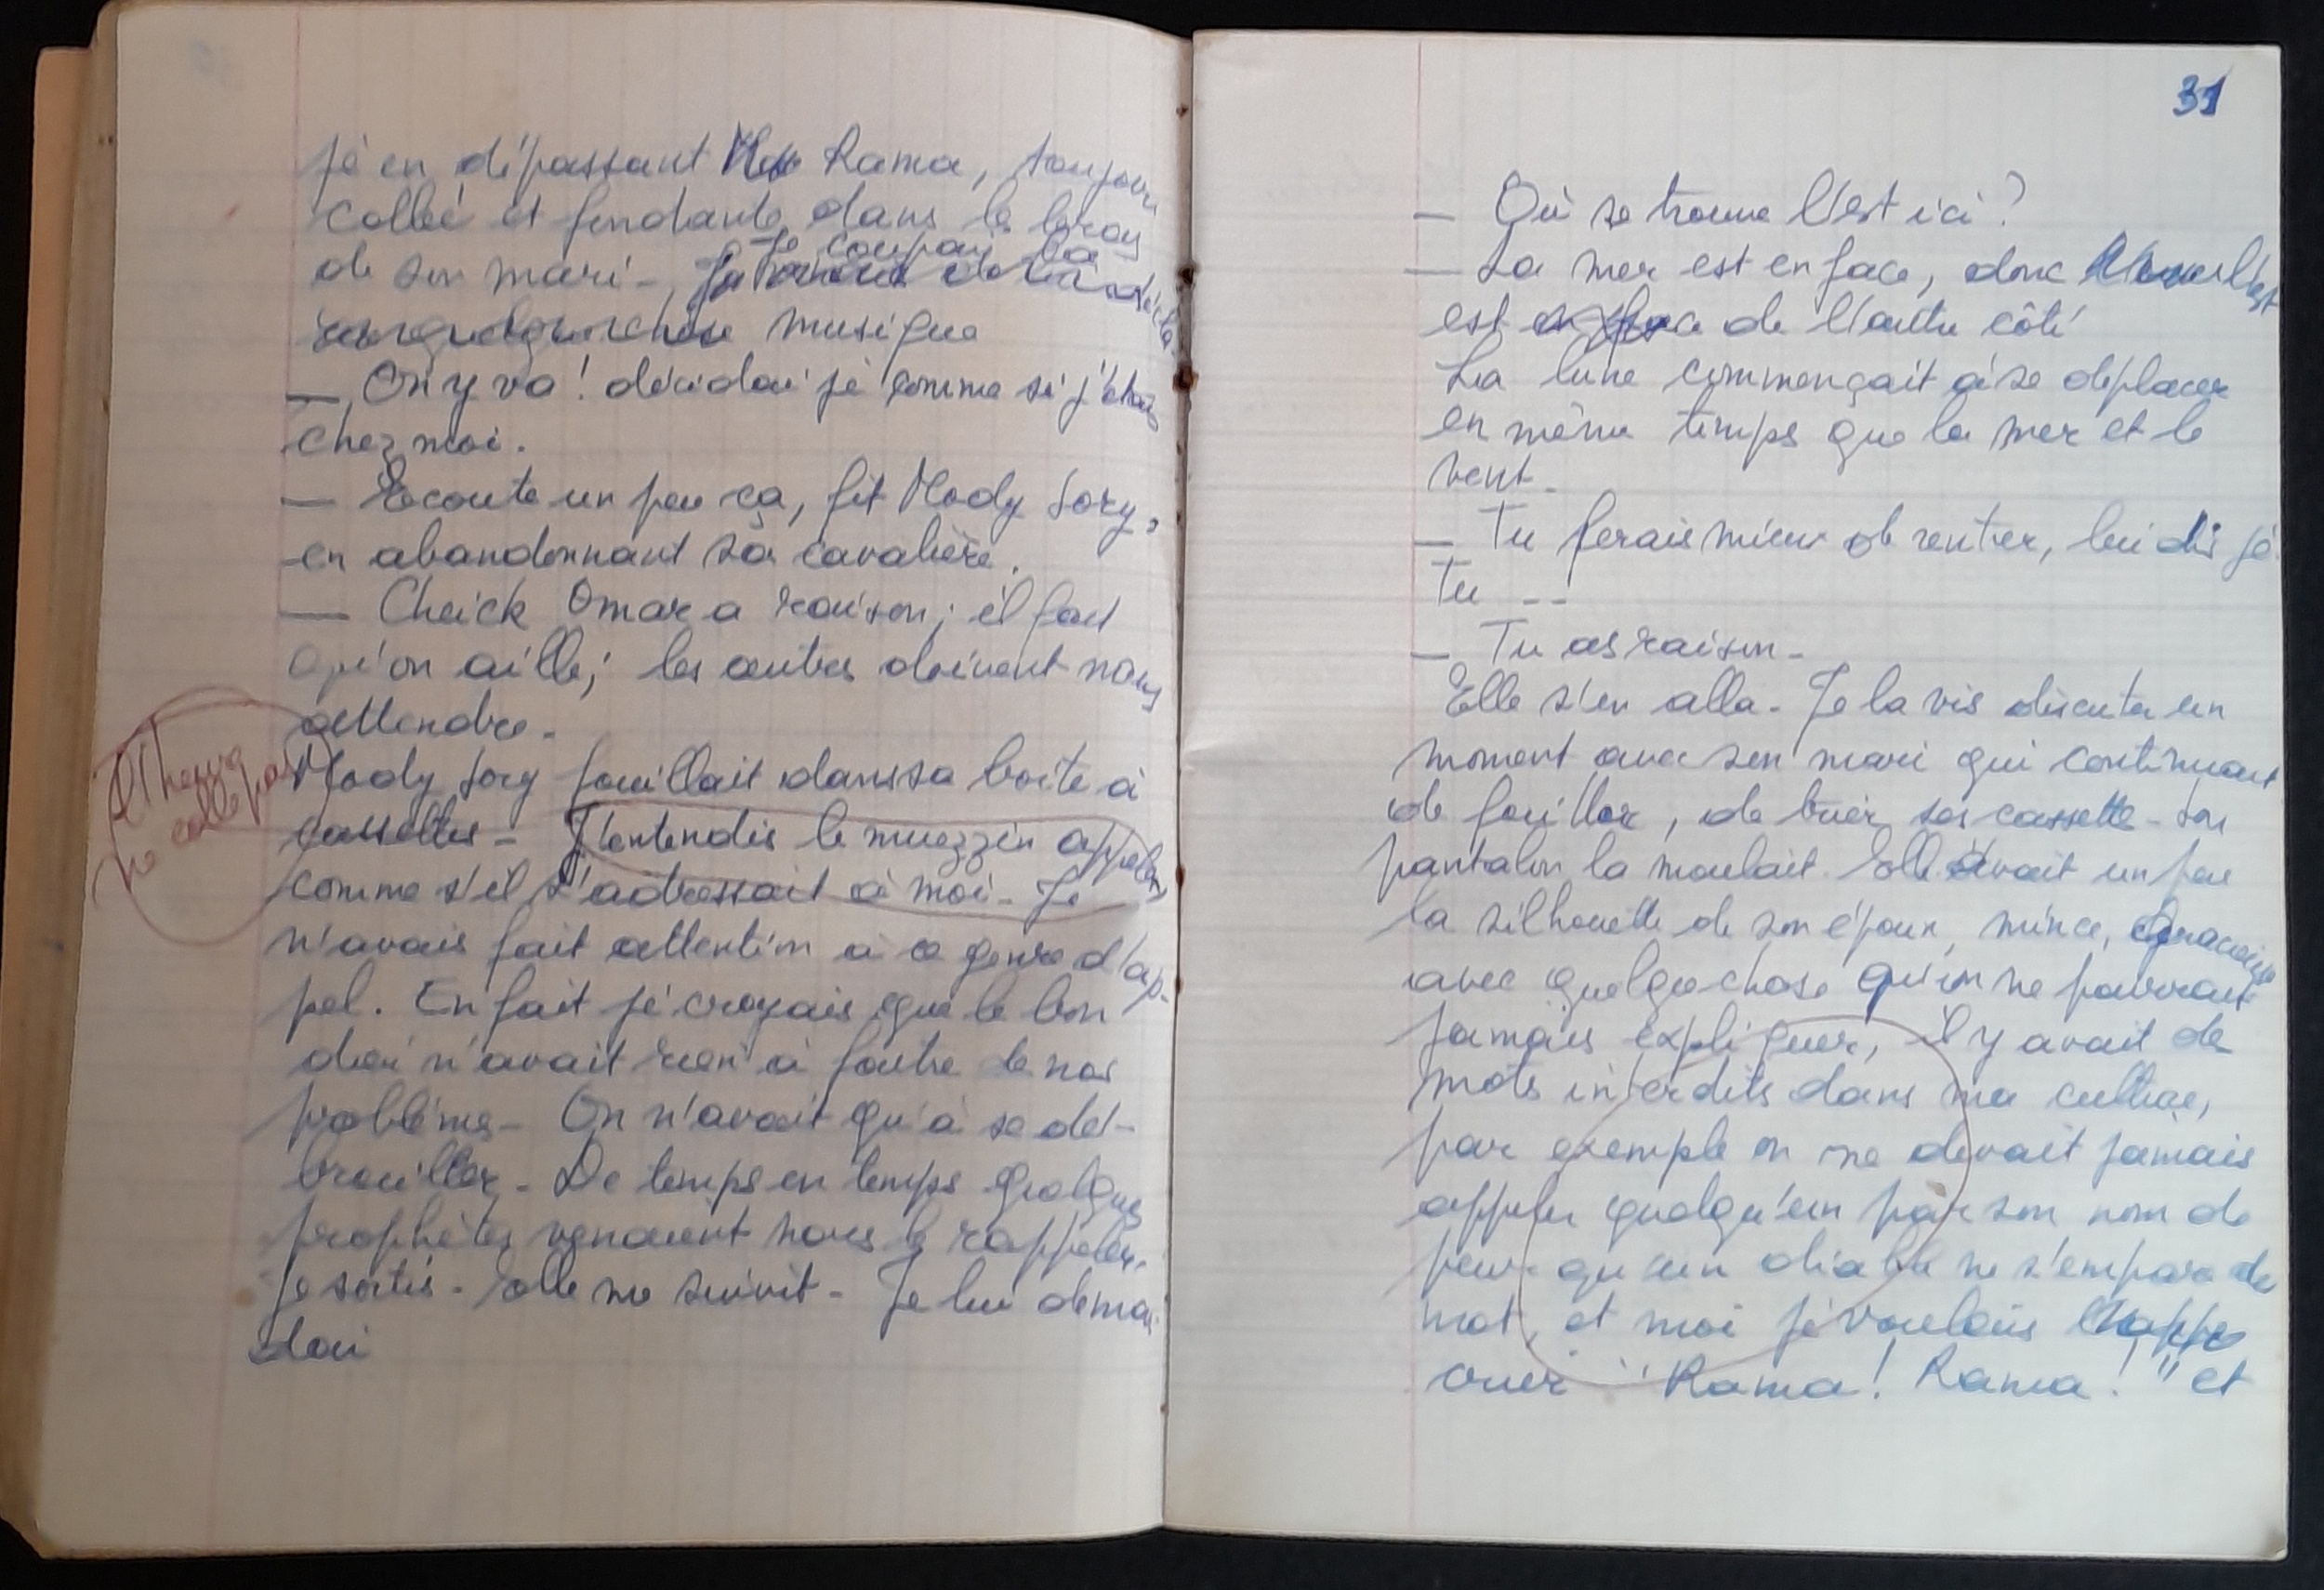 je en dépassant Rama, toujours
collée et fondante dans les bras
de son mari - Je coupai la
musique
— On y va ! décidai je comme si j'étais
chez moi.
— Ecoute un peu ça, fit Mody Sory,
en abandonnant sa cavalière.
— Cheick Omar a raison ; il faut
qu'on aille ; les autres doivent nous
attendre -
Mody Sory fouillait dans sa boite à
cassettes - J'entendis le muezzin appeler
L'heure
ne colle pas
comme s'il s'adressait à moi - Je
n'avais fait attention à ce genre d'ap-
pel. En fait je croyais que le bon
dieu n'avait rien à foutre de nos
problèmes - On n'avait qu'à se dé-
brouiller - De temps en temps quelques
prophètes venaient nous le rappeler.
Je sortis - Elle me suivit - Je lui deman-
dai
31
— Où se trouve l'est ici ?
— La mer est en face, donc l'est
est de l'autre côté
La lune commençait à se déplacer
en même temps que la mer et le
vent -
— Tu ferais mieux de rentrer, lui dis je
Tu --
— Tu as raison -
Elle s'en alla - Je la vis discuter un
moment avec son mari qui continuait
de fouiller, de trier ses cassette - Son
pantalon la moulait. Elle avait un peu
la silhouette de son époux, mince, gracieuse
avec quelque chose qu'on ne pourrait
jamais expliquer, il y avait de
mots interdits dans ma culture,
par exemple on ne devait jamais
appeler quelqu'un par son nom de
peur qu'un diable ne s'empare de
mot, et moi je voulais
crier "Rama ! Rama ! " et